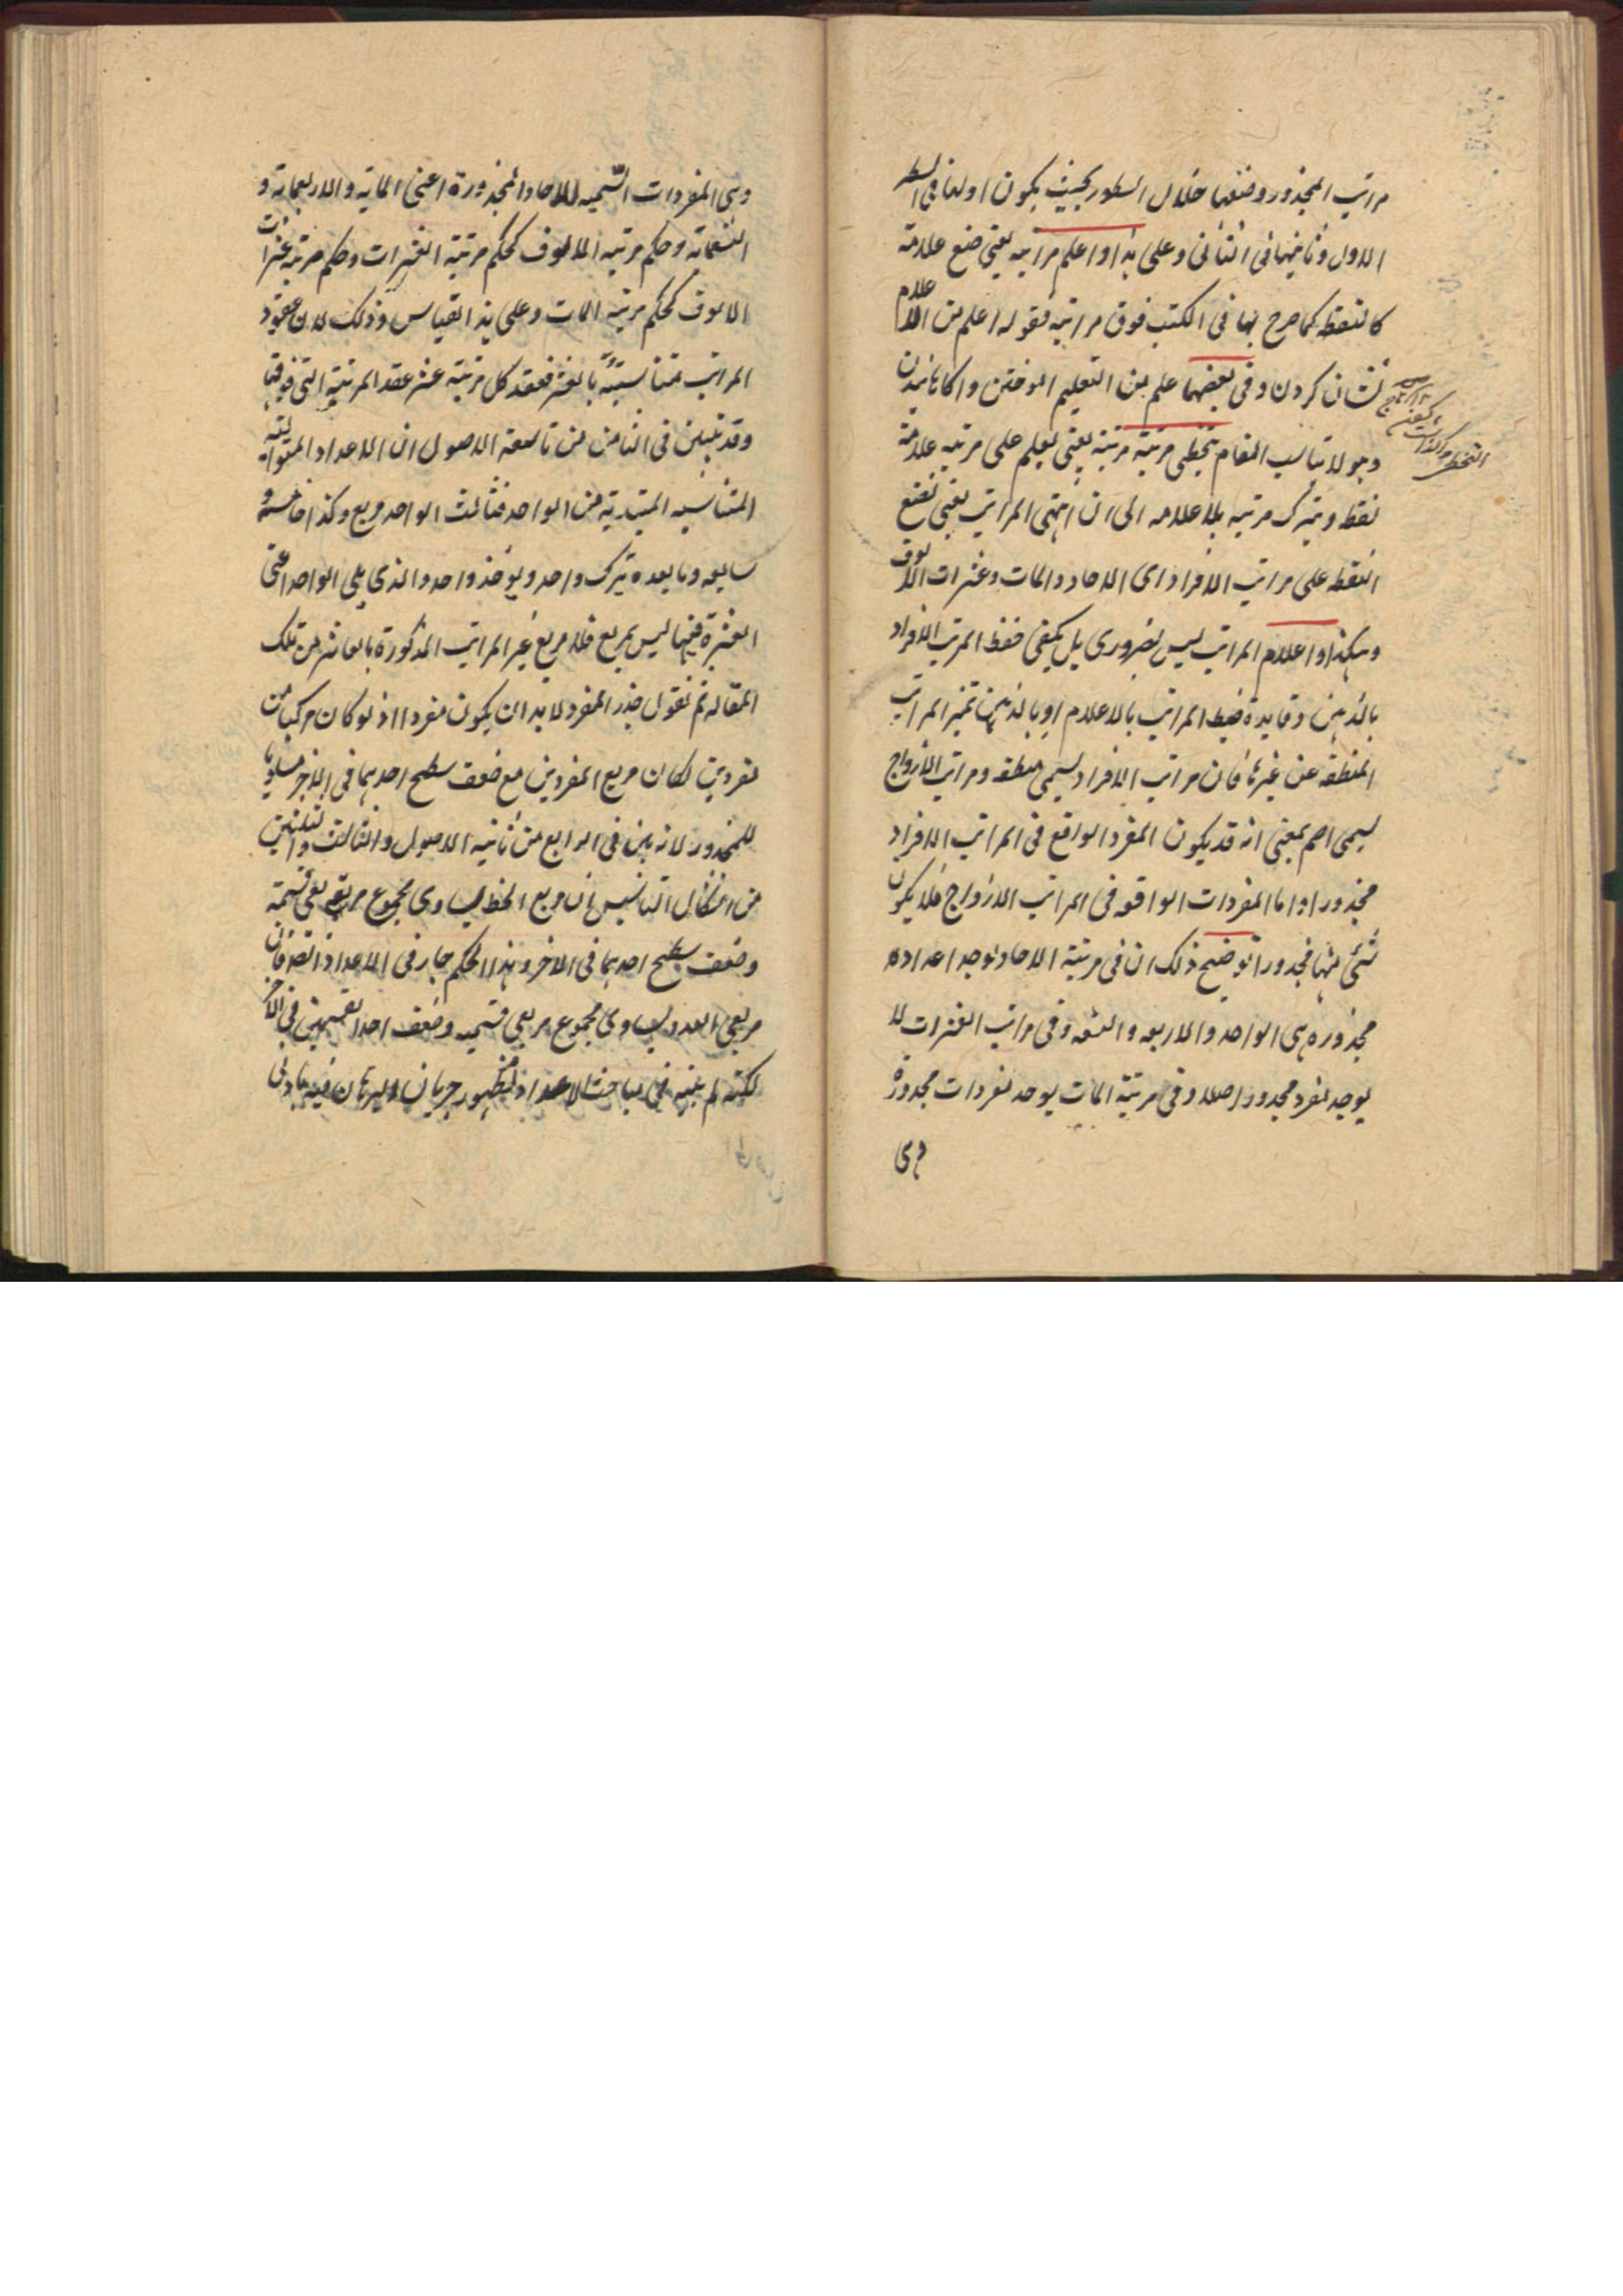 مراتب المجذور وضعها خلال السطور بحيث يكون اولها فى السطر
الاول وثانيها فى الثانى وعلى هذا واعلم مراتبه يعنى ضع علامة
كالنقطة كما صرح بها فى الكتب فوق مراتبه فقوله اعلم من الاعلام
نشان كردن وفى بعضها علم من التعليم اموختن واكاهانيدن
وهو لا يناسب المقام بتخطى مرتبة مرتبة يعنى يعلم على مرتبه علامة
نقط ويترك مرتبه بلا علامه الى ان انتهى المراتب يعنى تضع
النقطه على مراتب الافراد اى الاحاد والمات وعشرات الالوف
وهكذا واعلام المراتب ليس بضرورى بل يكفى حفظ المرتب الافراد
بالذهن وفايدة ضبط المراتب بالاعلام او بالذهن تميز المراتب
المنطقه عن غيرها فان مراتب الافراد يسمى منطقه ومراتب الازواج
يسمى اصم بمعنى انه قد يكون المفرد الواقع فى المراتب الافراد
مجذورا واما المفردات الواقعه فى المراتب الازواج فلا يكون
شئ منها مجذورا توضيح ذلك ان فى مرتبة الاحاد يوجد اعداد
مجذوره هى الواحد والاربعه والتسعه وفى مراتب العشرات لا
يوجد مفرد مجذور اصلا وفى مرتبة المات يوجد مفردات مجذورة
وهى
وهى المفردات السميه للاحاد المجذورة اعنى الماية والاربعماية و
التسعماية وحكم مرتبه الالوف كحكم مرتبة العشرات وحكم مرتبة عشرات
الالوف كحكم مرتبه المات وعلى هذا القياس وذلك لان عقود
المراتب متناسبة بالعشر فعقد كل مرتبة عشر عقد المرتبة التى فوقها
وقد تبين فى الثامن من تاسعة الاصول ان الاعداد المتواليه
المتناسبه المبتدية من الواحد فثالث الواحد مربع وكذا خامسه و
سابعه وما بعده يترك واحد ويوخذ واحد والذى يلى الواحد اعنى
العشرة فيها ليس بمربع فلا مربع غير المراتب المذكورة بالعاشر من تلك
المقاله ثم نقول جذر المفرد لا بد ان يكون مفردا اذ لو كان مركبا من
مفردين لكان مربع المفردين مع ضعف سطح احدهما فى الاخر مساويا
للمجذور لانه بين فى الرابع من ثانيه الاصول والثالث والثلثين
من اشكال التاسيس ان مربع الخط يساوى مجموع مربعى قسمية
وضعف سطح احدهما فى الاخر وهذا الحكم جار فى الاعداد ايضا فان
مربع العدد يساوى مجموع مربعى قسميه وضعف احد القسمين فى الاخر
لكنه لم يبنه فى مباحث الاعداد لظهور جريان البرهان فيه بادنى